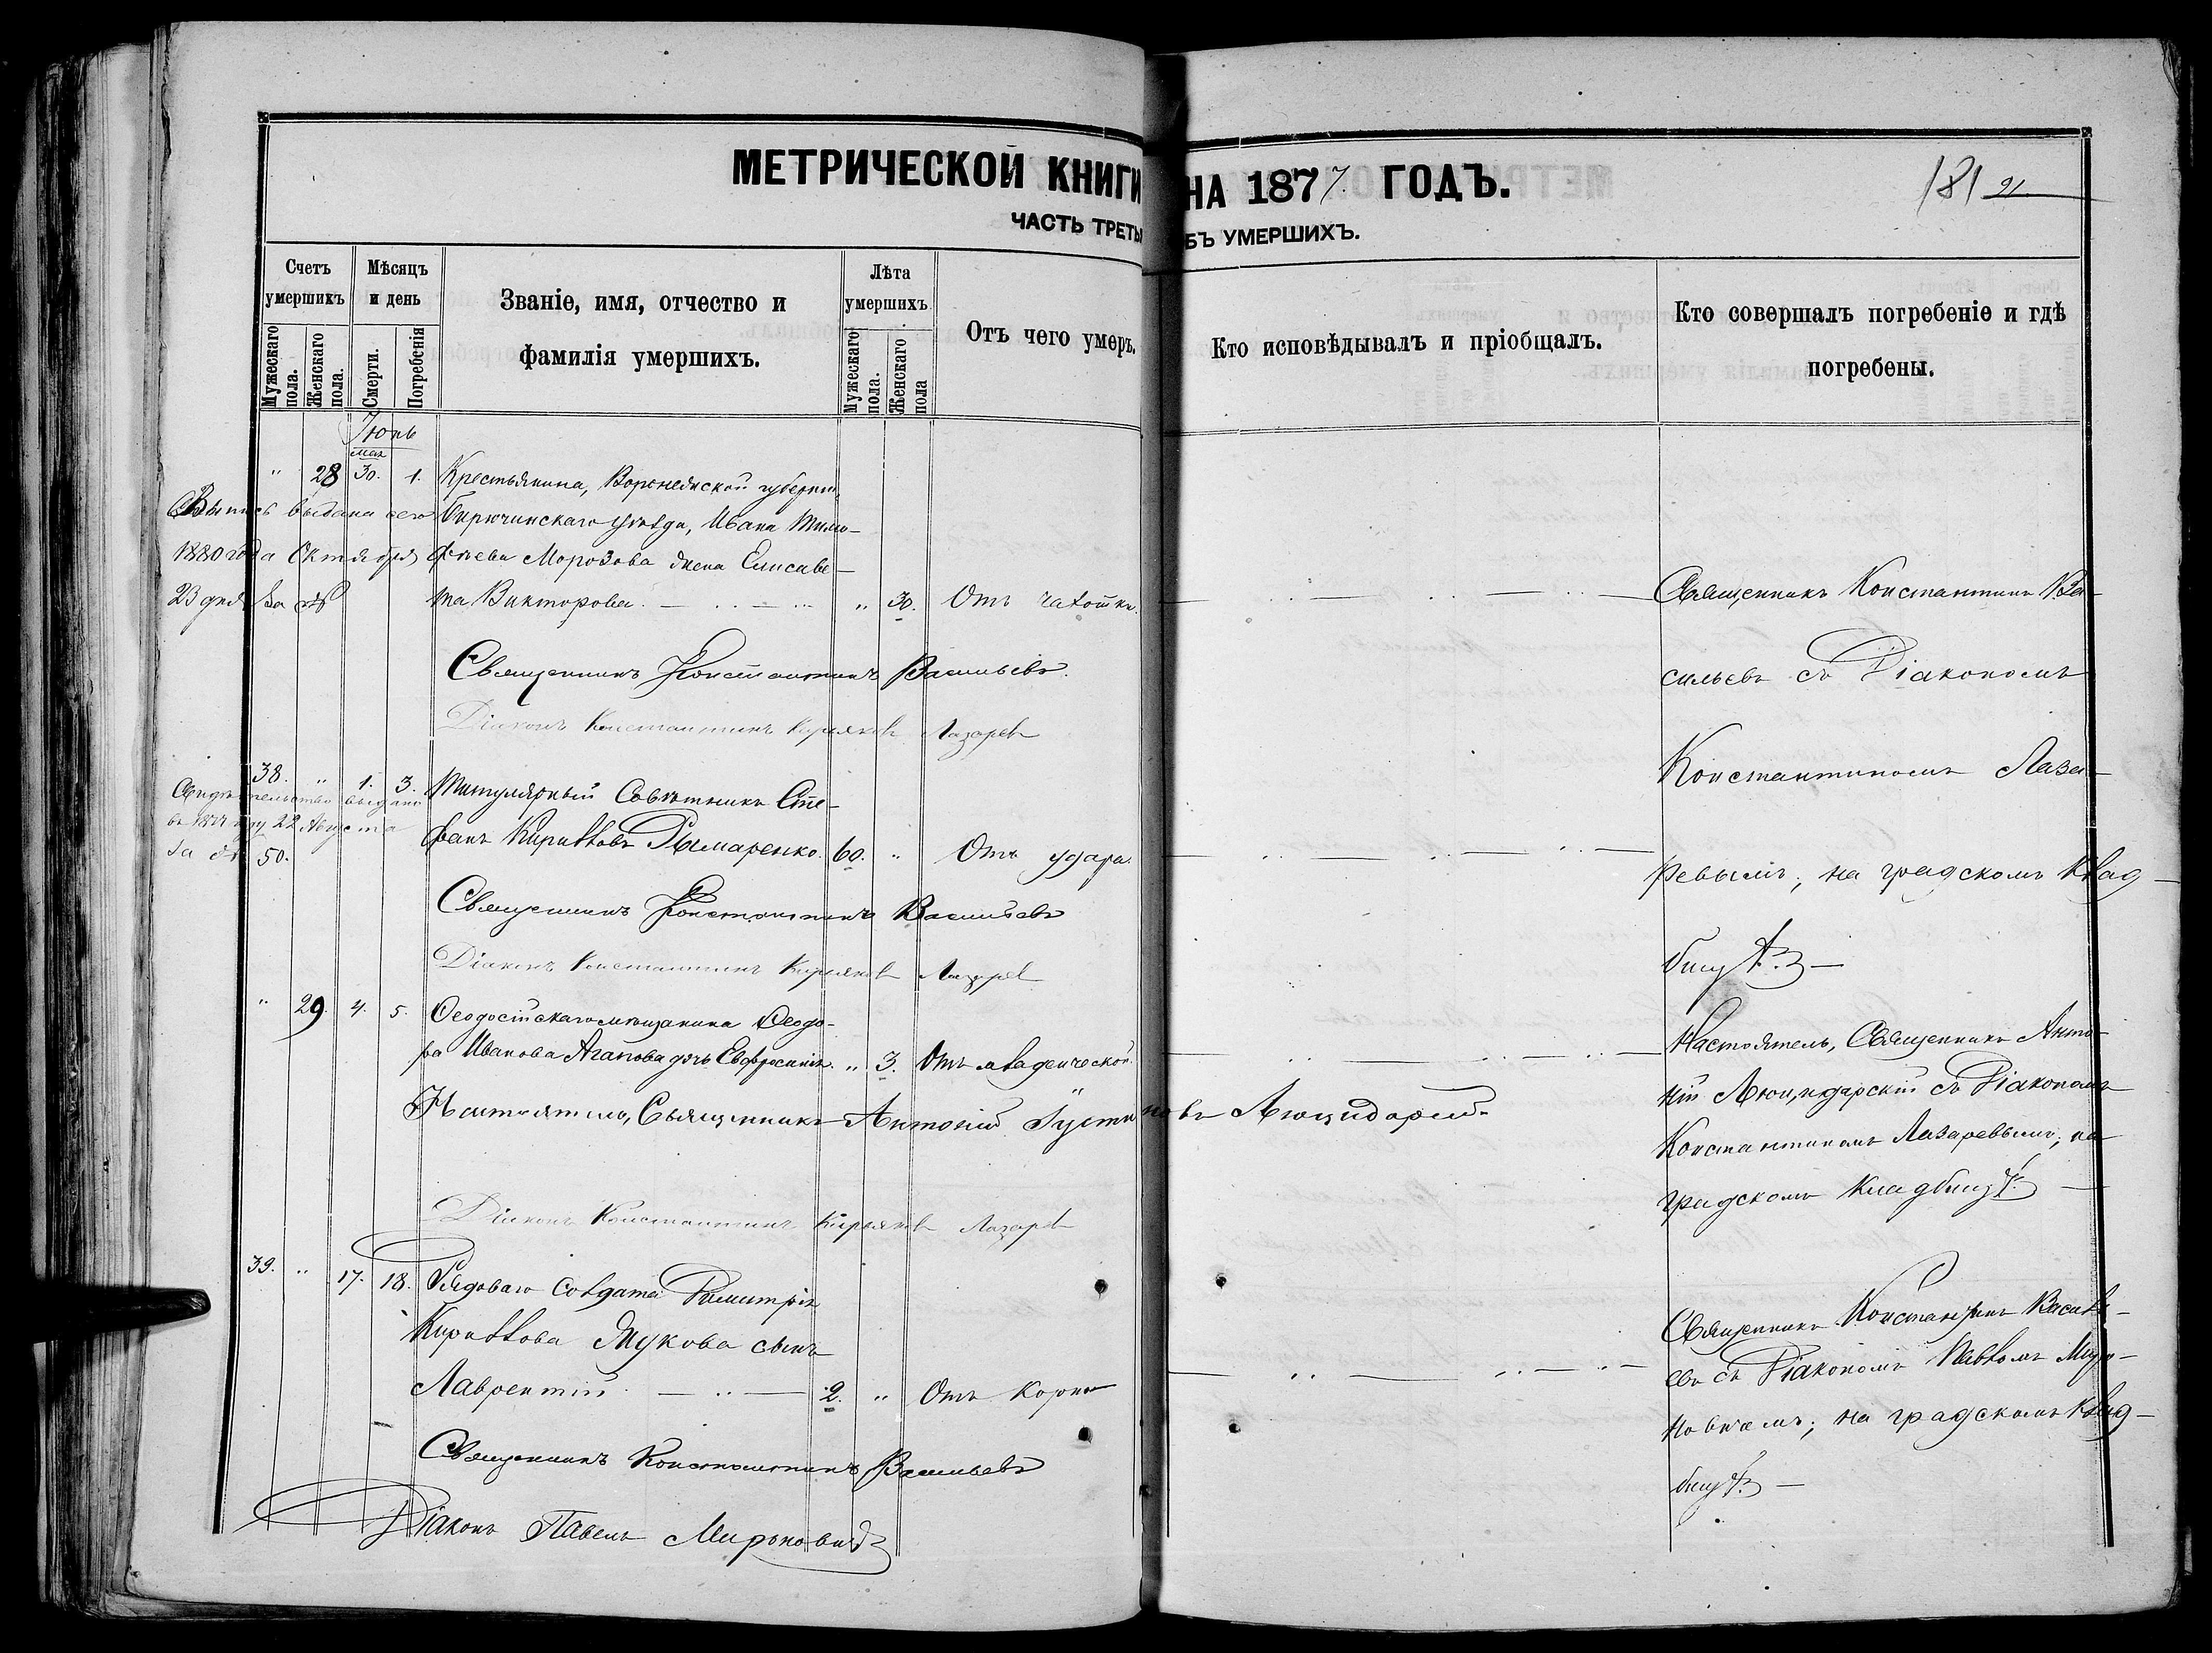 МЕТРИЧЕСКОЙ КНИГИ НА 1877. ГОДЪ.
181 91.
ЧАСТЬ ТРЕТЬ БЪ УМЕРШИХЪ.
Счетъ умершихъ
Мужескаго пола.
Женскаго пола.
Мѣсяцъ и день
Смерти.
Погребенія
Званіе, имя, отчество и фамилія умершихъ.
Лѣта умершихъ.
Мужескаго пола.
Женскаго пола
Отъ чего умеръ.
Кто исповѣдывалъ и пріобщалъ.
Кто совершалъ погребеніе и гдѣ погребены.
Іюнь
мая
" 28 30. 1. Крестьянина, Воронежской губерніи,
Бирючинскаго уѣзда, Ивана Тимо-
фѣева Морозова жена Елисаве-
та Викторова. " 30. Отъ чахотки.
Выпись выдана сего
1880 года Октября
23 дня за №
Священникъ Константинъ Васильевъ.
Діаконъ Константинъ Кирьяковъ Лазаревъ
38. " 1. 3. Титулярный Совѣтникъ Сте-
фанъ Кирилловъ Рымаренко. 60. " Отъ удара.
Свидѣтельство выдано
въ 1877 году 22 Августа
за № 50.
Священникъ Константинъ Васильевъ
Діаконъ Константинъ Кирьяковъ Лазаревъ
Священникъ Константинъ Ва-
сильевъ съ Діакономъ
Константиномъ Лаза-
ревымъ; на градскомъ клад-
бищѣ. —
" 29. 4. 5. Ѳеодосійскаго мѣщанина Ѳеодо-
ра Иванова Агапова дочь Евфросинія. " 3. Отъ младенческой.
Настоятель, Священникъ Антоній Іустиновъ Люцидарскій.
Діаконъ Константинъ Кирьяковъ Лазаревъ
Настоятель, Священникъ Анто-
ній Люцидарскій съ Діакономъ
Константиномъ Лазаревымъ; на
градскомъ кладбищѣ. —
39. " 17. 18. Рядоваго солдата Димитрія
Кириллова Жукова сынъ
Лаврентій 2. " Отъ кори
Священникъ Константинъ Васильевъ
Діаконъ Павелъ Мироновичъ
Священникъ Константинъ Василь-
евъ съ Діакономъ Павломъ Миро-
новичемъ; на градскомъ клад-
бищѣ. —